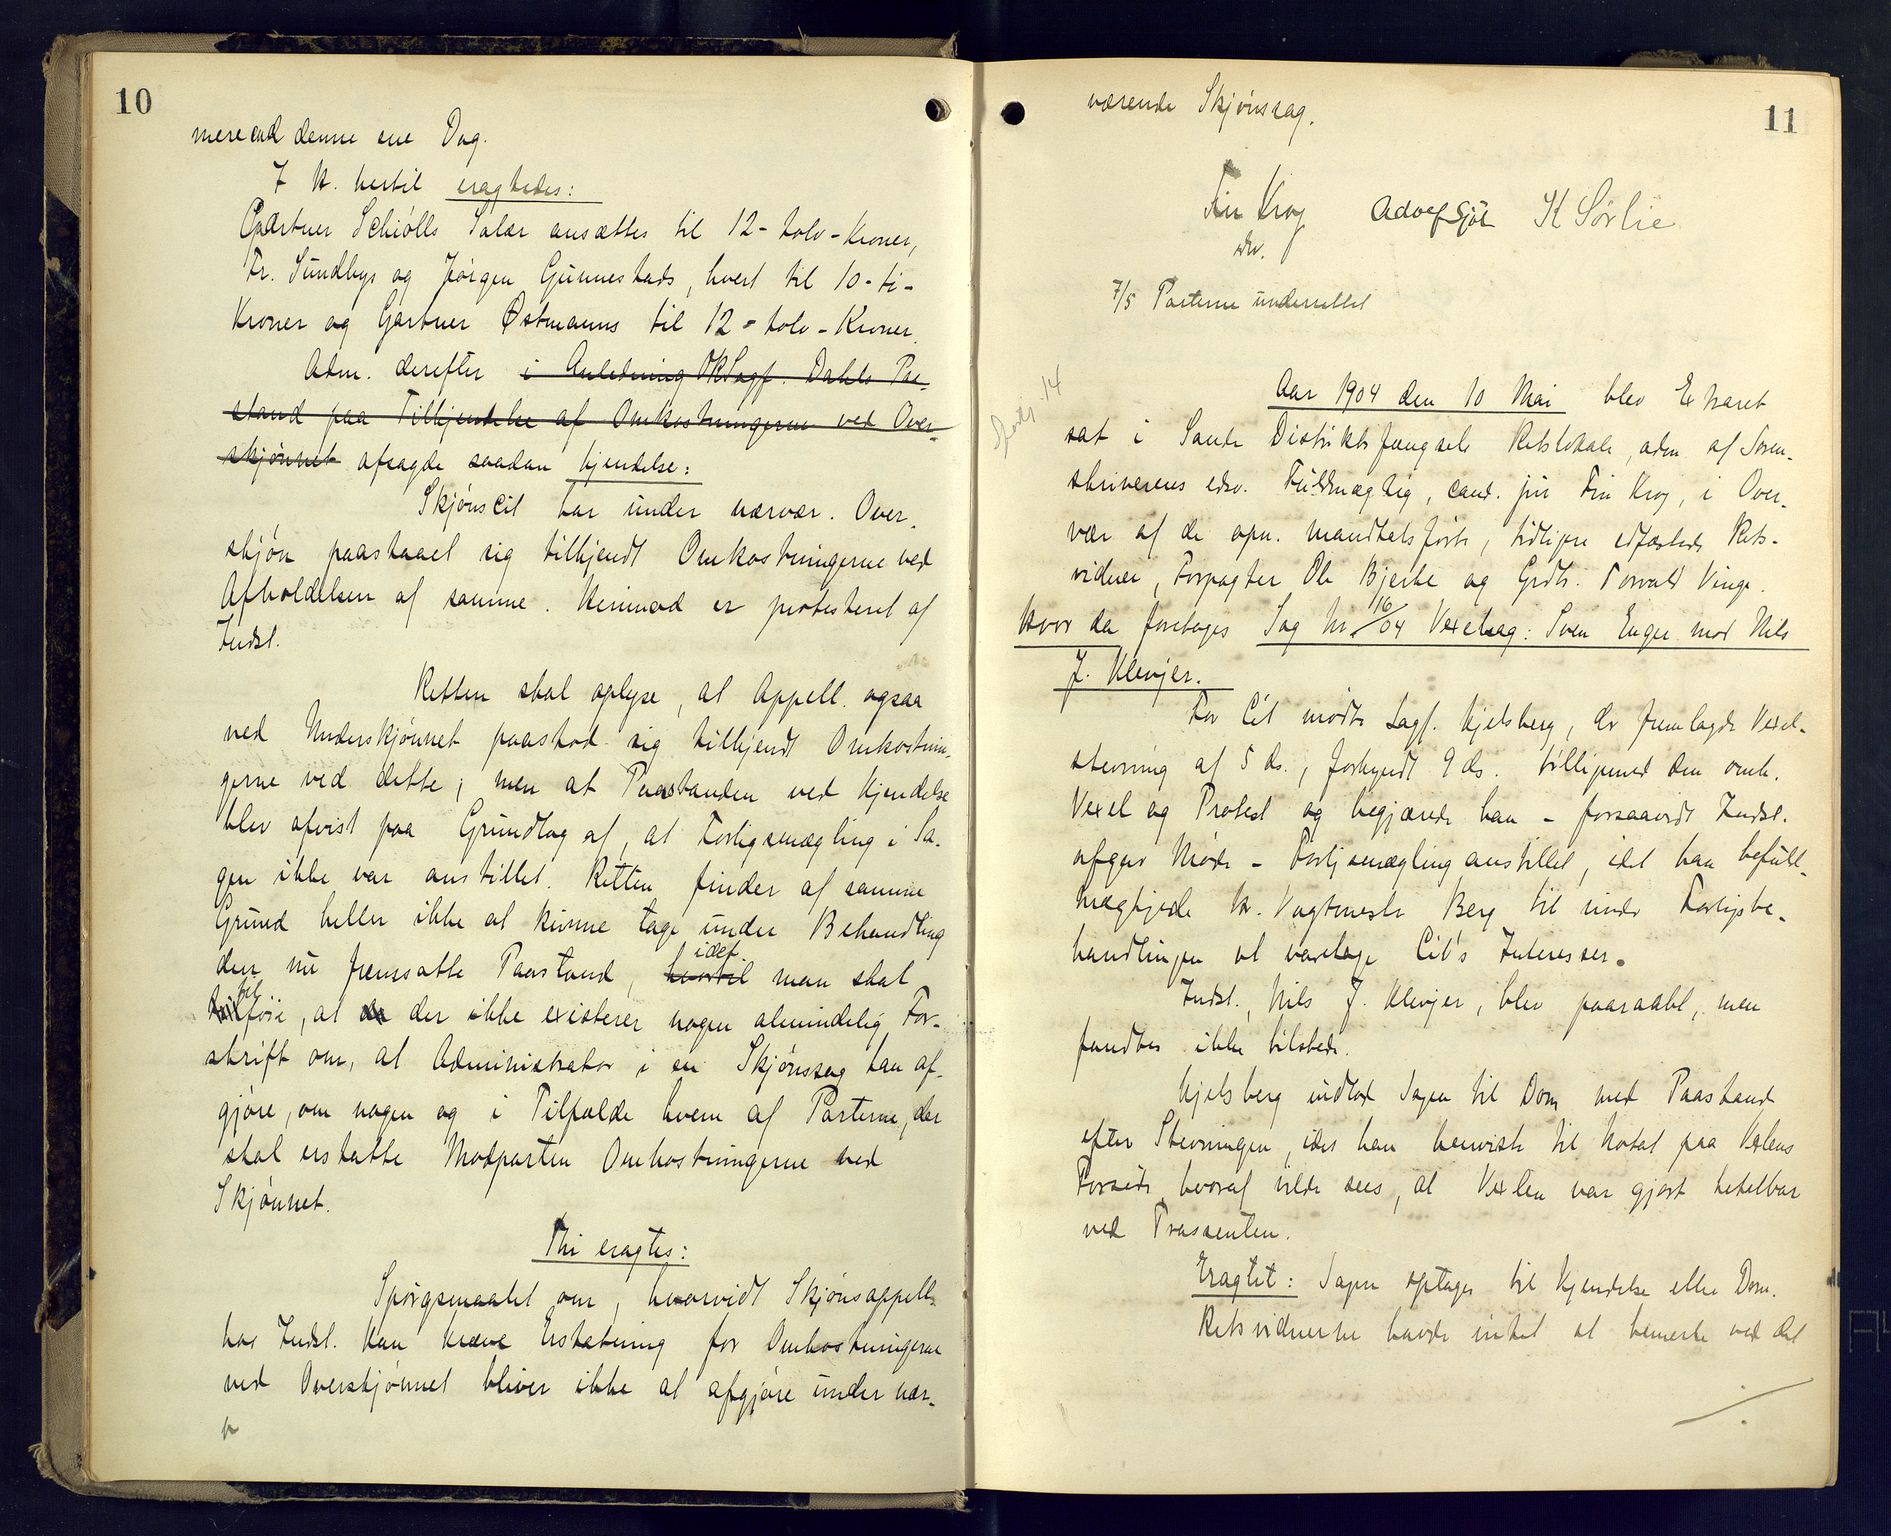 10
mere end denne ene Dag.
I K. hertil eragtedes:
Gartner Schiølls Salær ansættes til 12 - tolv - Kroner,
Fr. Sundbys og Jørgen Gunnestads, hvert til 10 - ti -
Kroner og Gartner Østmanns til 12 - tolv - Kroner.
Adm. derefter i Anledning OKSagf. Dahls Paa-
stand paa Tilkjendelse af Omkostningerne ved Over-
skjønnet afsagde saadan kjendelse:
Skjønscit har under nærvær. Over-
skjøn paastaaet sig tilkjendt Omkostningerne ved
Afholdelsen af samme. Herimod er protesteret af
Indst.
Retten skal oplyse, at Appell. ogsaa
ved Underskjønnet paastod sig tilkjendt Omkostnin-
gerne ved dette, men at Paastanden ved Kjendelse
blev afvist paa Grundlag af, at Forligsmægling i Sa-
gen ikke var anstillet. Retten finder af samme
Grund heller ikke at kunne tage under Behandling
den nu fremsatte Paastand, hvortil idet man skal
tilføie, at der ikke existerer nogen almindelig For-
skrift om, at Administrator i en Skjønssag kan af-
gjøre, om nogen og i Tilfælde hvem af Parterne, der
skal erstatte Modparten Omkostningerne ved
Skjønnet.
Thi eragtes:
Spørgsmaalet om, hvorvidt Skjønsappell.
hos Indst. kan kræve Erstatning for Omkostningerne
ved Overskjønnet bliver ikke at afgjøre under nær-
11
værende Skjønssag.
Fin Krog Adolf Sjøl K Sørlie
edsv.
7/5 Parterne underrettet
14
Aar 1904 den 10 Mai blev Ex traret
sat i Sande Distriktsfængsels Retslokale, adm. af Soren-
skriverens edsv. Fuldmægtig, cand. jur Fin Krog, i Over-
vær af de opn. mandtalsførte, tidligere edfæstede Rets-
vidner, Forpagter Ole Bjerke og Grdb. Torvald Vinge.
Hvor da foretoges Sag Nr. 16/04 Vexelsag: Sven Enger mod Nils
J. Klevjer.
For Cit mødte Sagf. Kjelsberg, der fremlagde Vexel-
stevning af 5 ds., forkyndt 9 ds. tilligemed den omh.
Vexel og Protest og begjærede han - forsaavidt Indst.
afgav Møde - Forligsmægling anstillet, idet han befuld-
mægtigede Hr. Vagtmester Berg til under Forligsbe-
handlingen at varetage Cit's Interesser.
Indst., Nils J. Klevjer, blev paaraabt, men
fandtes ikke tilstede.
Kjelsberg indlod Sagen til Dom med Paastand
efter Stevningen, idet han henviste til Notat paa Vexlens
Forside, hvoraf vilde sees, at Vexlen var gjort betalbar
ved Trassenten.
Eragtet: Sagen optages til Kjendelse eller Dom.
Retsvidnerne havde intet at bemerke ved det